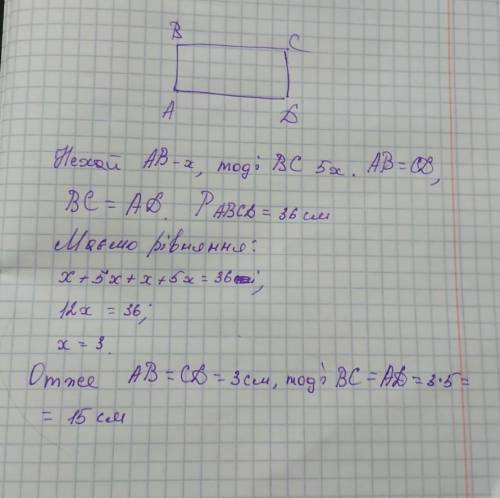 B C
A D
Нехай AB - x, тоді BC 5x. AB = CD,
BC = AD. P ABCD = 36 см
Маємо рівняння:
x + 5x + x + 5x = 36;
12x = 36;
x = 3.
Отже AB = CD = 3 см, тоді BC = AD = 3·5 =
= 15 см